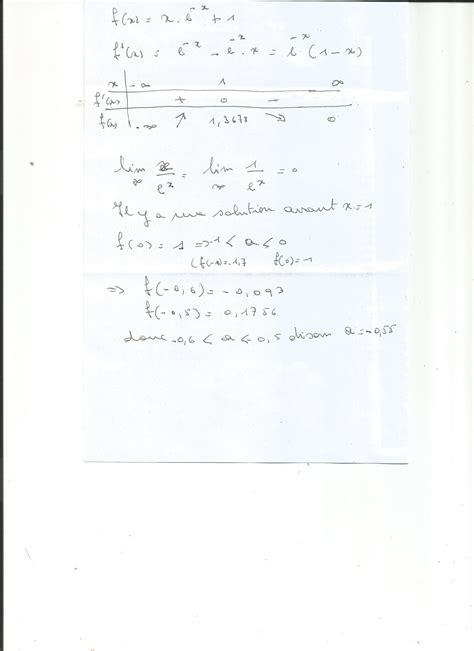 f(x) = x . e^-x + 1
f'(x) = e^-x - e^-x . x = e^-x (1 - x)
x | -∞ 1 ∞
f'(x) + 0 -
f(x) -∞ ↗ 1,3678 ↘ 0
lim ∞ x/e^x = lim ∞ 1/e^x = 0
Il y a une solution avant x = 1
f(0) = 1 => -1 < a ≤ 0
(f(-1) = -1,7 f(0) = 1
=> f(-0,6) = -0,093
f(-0,5) = 0,1756
donc -0,6 < a < -0,5 disons a = -0,55